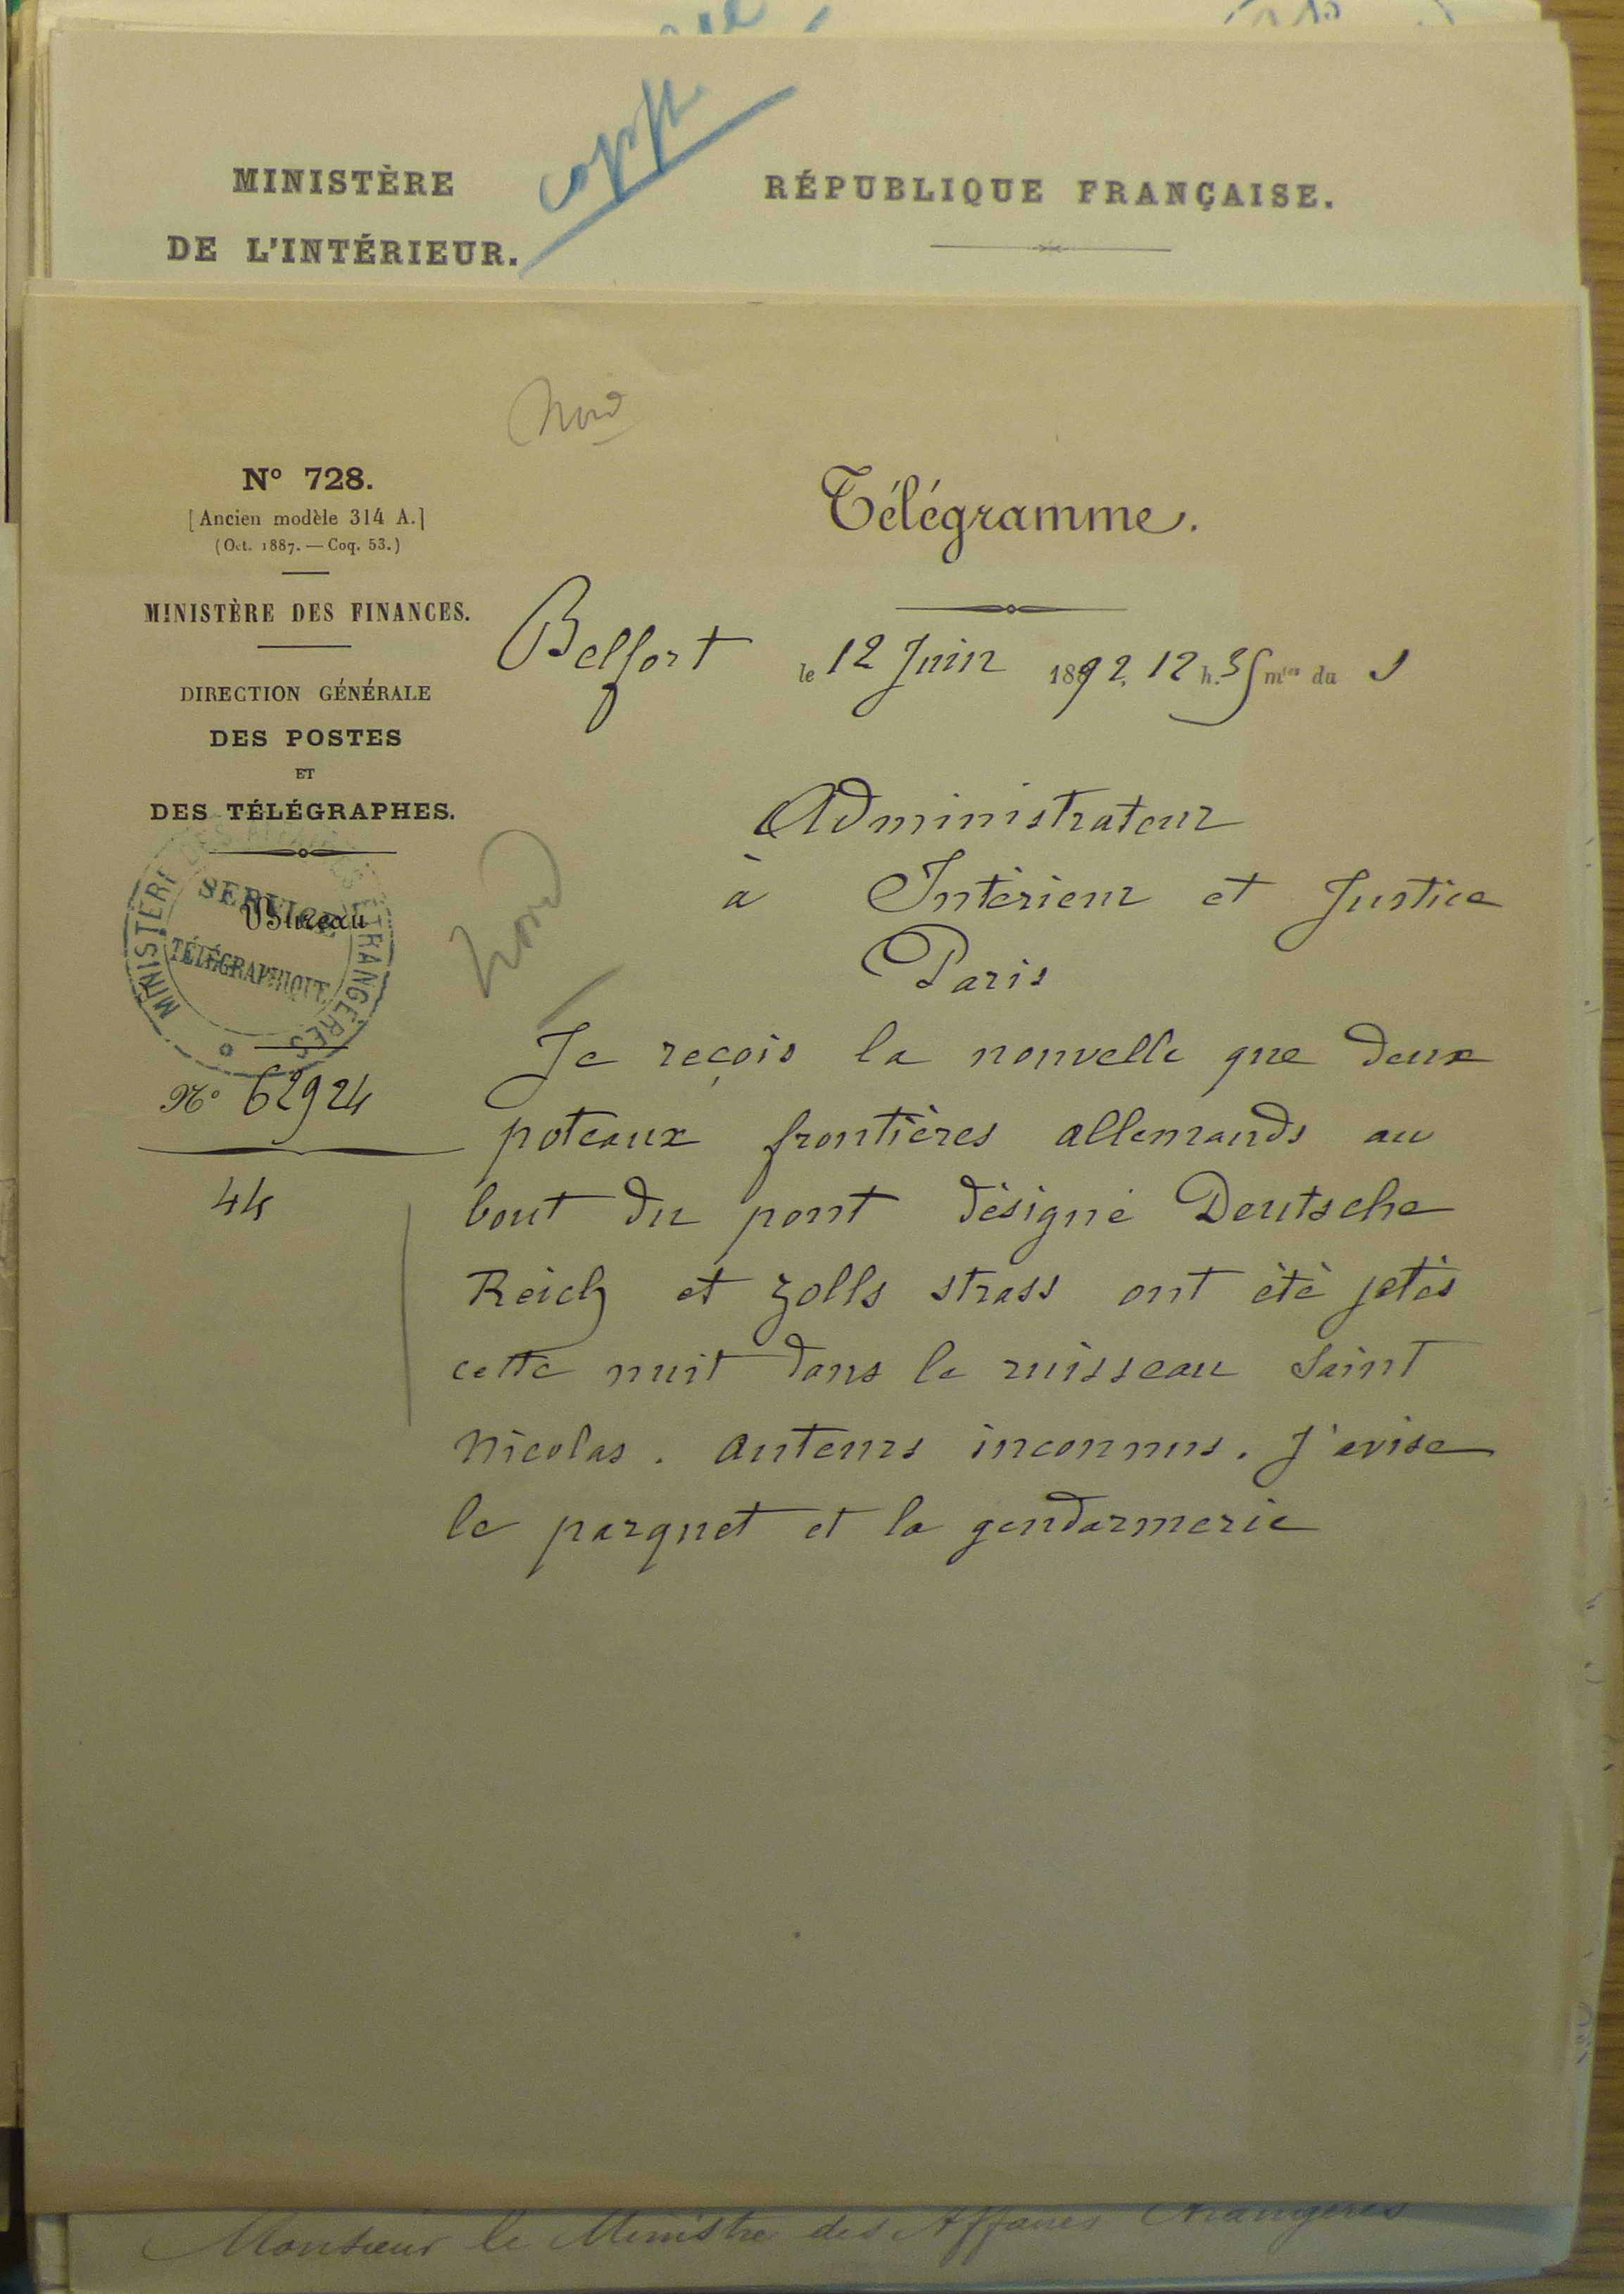 copie
MINISTÈRE
DE L'INTÉRIEUR.
RÉPUBLIQUE FRANÇAISE.
Nord
N° 728.
[Ancien modèle 314 A.]
(Oct. 1887. — Coq. 53.)
MINISTÈRE DES FINANCES.
DIRECTION GÉNÉRALE
DES POSTES
ET
DES TÉLÉGRAPHES.
MINISTÈRE DES AFFAIRES ÉTRANGÈRES
SERVICE
TÉLÉGRAPHIQUE
Bureau
N° 62924
44
Télégramme.
Belfort le 12 Juin 1892, 12 h. 35 mtes du s
Nord
Administrateur
à Intérieur et Justice
Paris
Je reçois la nouvelle que deux
poteaux frontières allemands au
bout du pont désigné Deutsche
Reich et Zolls strass ont été jetés
cette nuit dans le ruisseau Saint
Nicolas. auteurs inconnus. J'avise
le parquet et la gendarmerie
Monsieur le Ministre des Affaires Etrangères